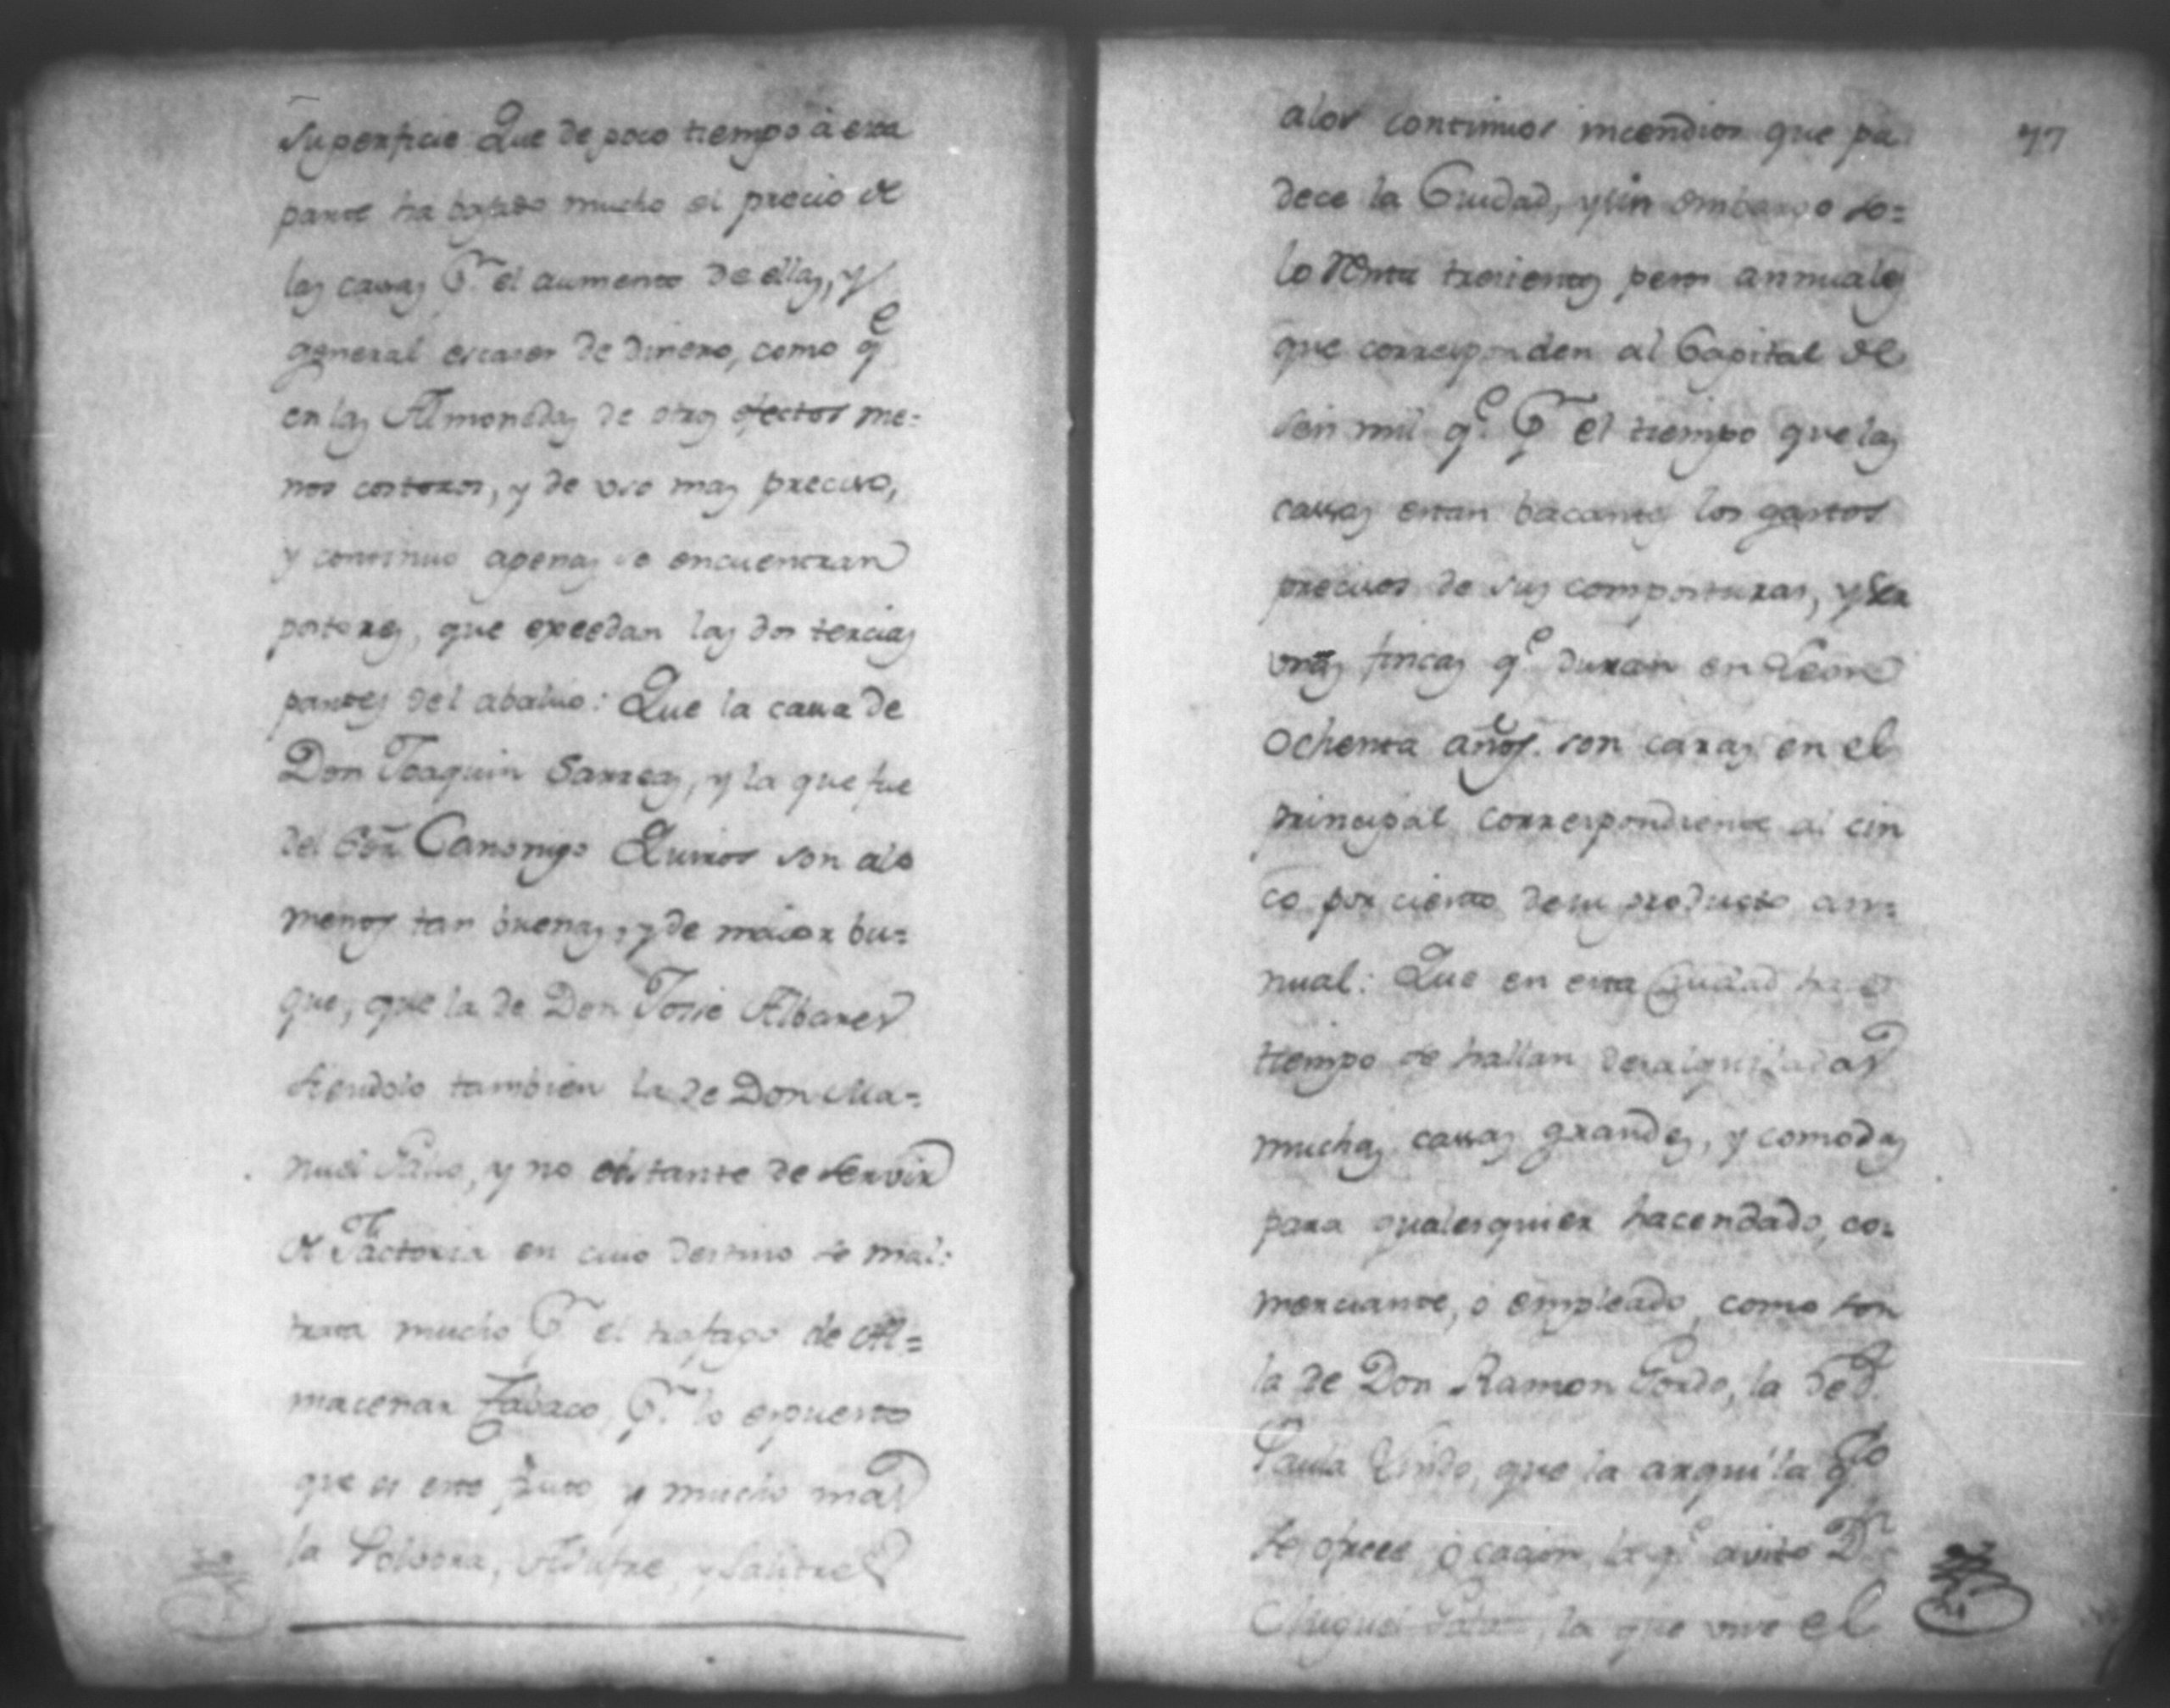 superficie Que de poco tiempo á esta
parte ha bajado mucho el precio de
las casas Pr. el aumento de ellas, y
general escases de dinero, como qe
en las Almonedas de otros efectos me=
nos costosos, y de uso mas preciso,
y continuo apenas se encuentran
postores, que exedan las dos tercias
partes del abaluo: Que la casa de
Don Joaquin Sarreas, y la que fue
del Sor. Canonigo Quiros son alo
menos tan buenas, y de maior bu=
que, que la de Don Josie Albares
siendolo tambien la de Don Ma=
nuel Palio, y no obstante de servir
de Factoria en cuio destino se mal=
trata mucho Pr. el trafago de Al=
macenar Tabaco, Pr. lo expuesto
que es este fruto y mucho mas
la Polvora, Asufre, y Salitre
77
alos continuos incendios que pa
dece la Ciudad, y sin embargo so=
lo renta tresientos pesos annuales
que corresponden al Capital de
seis mil qe. Pr. el tiempo que las
casas estan bacantes los gastos
precisos de sus composturas, y ser
unas fincas qe. duran en Leon
ochenta años. son caras en el
principal correspondiente al cin
co por ciento de su producto an=
nual: Que en esta Ciudad ha
tiempo se hallan desalquiladas
muchas casas grandes, y comodas
para qualesquier hacendado, co=
merciante, ó empleado, como son
la de Don Ramon Pordo, la de D.
Paula Unido, que la arquila qdo
se ofrece ocacion, la qe. avito Dn
Miguel, la que vive el